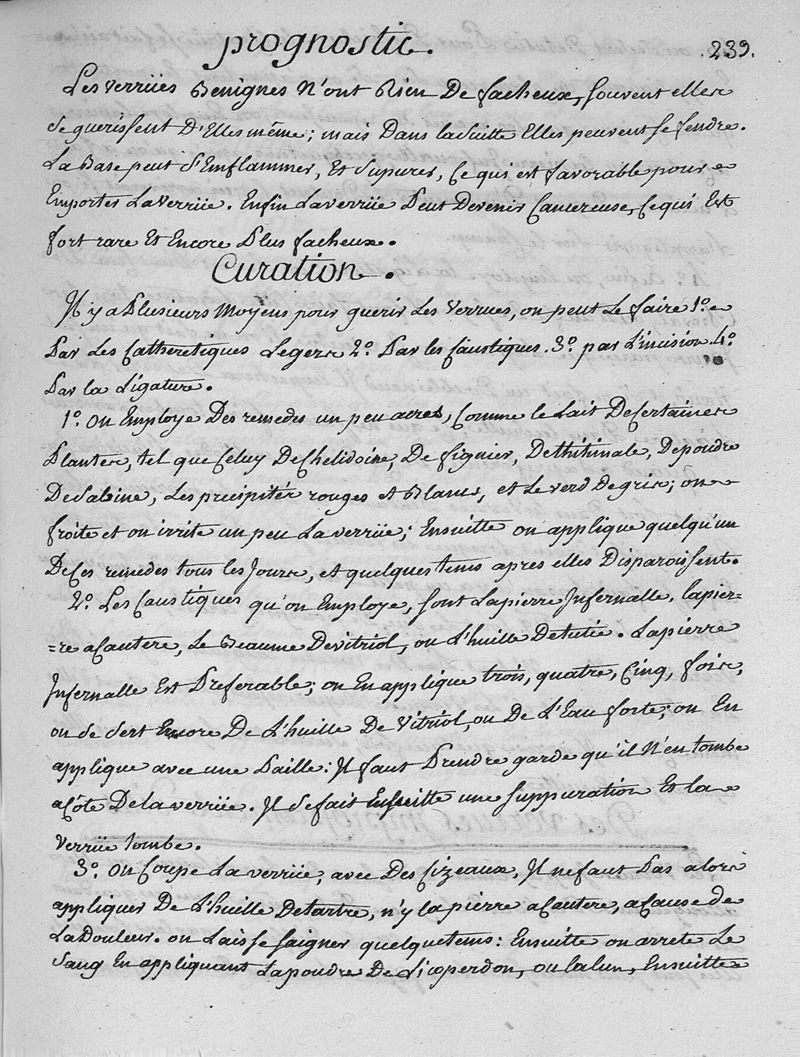 prognostic.
.239.
Les verrües Benignes N'ont Rien De facheux, souvent elles
se guerissent D'Elles même; mais Dans la suitte Elles peuvent se fendre.
La Base peut S'Enflammer, Et Supurer, Ce qui est favorable pour
Emporter La verrüe. Enfin La verrüe Peut Devenir Cancereuse, Ce qui Est
fort rare Et Encore Plus facheux.
Curation.
Il y a Plusieurs Moyens pour guerir Les Verrues, on peut Le faire 1.º
Par Les Catheretiques Legers 2.º Par les Caustiques. 3.º par L'incision. 4.º
Par la Ligature.
1.º On Employe Des remedes un peu acres, Comme le Lait De Certaines
Plantes, tel que Celuy De Chelidoine, De figuier, De thitimale, De poudre
De Sabine, Les precipités rouges et Blancs, et Le verd De gris; on
frotte et on irrite un peu La verrüe; Ensuitte on applique quelqu'un
De Ces remedes tous les Jours, et quelques tems apres elles Disparoissent.
2.º Les Caustiques qu'on Employe, sont La pierre Infernalle, la pier=
=re a Cautere, Le Beaume De vitriol, ou L'huille De tutie. La pierre
Infernalle Est Preferable; on En applique trois, quatre, Cinq, fois,
on se Sert Encore De L'huille De Vitriol, ou De L'Eau forte; on En
applique avec une Paille: Il faut Prendre garde qu'il N'en tombe
a Côte De la verrüe. Il se fait Ensuitte une suppuration Et la
verrüe tombe.
3.º On Coupe La verrüe, avec Des Cizeaux, Il ne faut Pas alors
appliquer De L'huille De tartre, n'y la pierre a Cautere, a Cause de
La Douleur. on Laisse saigner quelque tems: Ensuitte on arrete Le
Sang En appliquant La poudre De Licoperdon, ou l'alun, Ensuitte